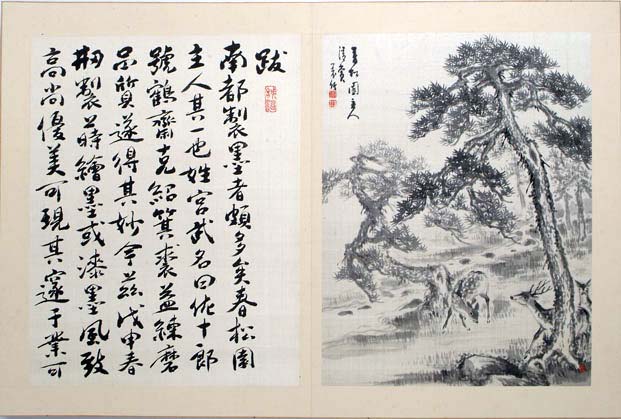 春松園主人
清賞
跋
南都製墨者頗多矣春松園
主人其一也姓宮武名曰佐十郎
號鶴齋克紹箕裘益練磨
品質遂得其妙今茲戊申春
剏製蒔繪墨或漆墨風致
高尚優美可現其邃于業可